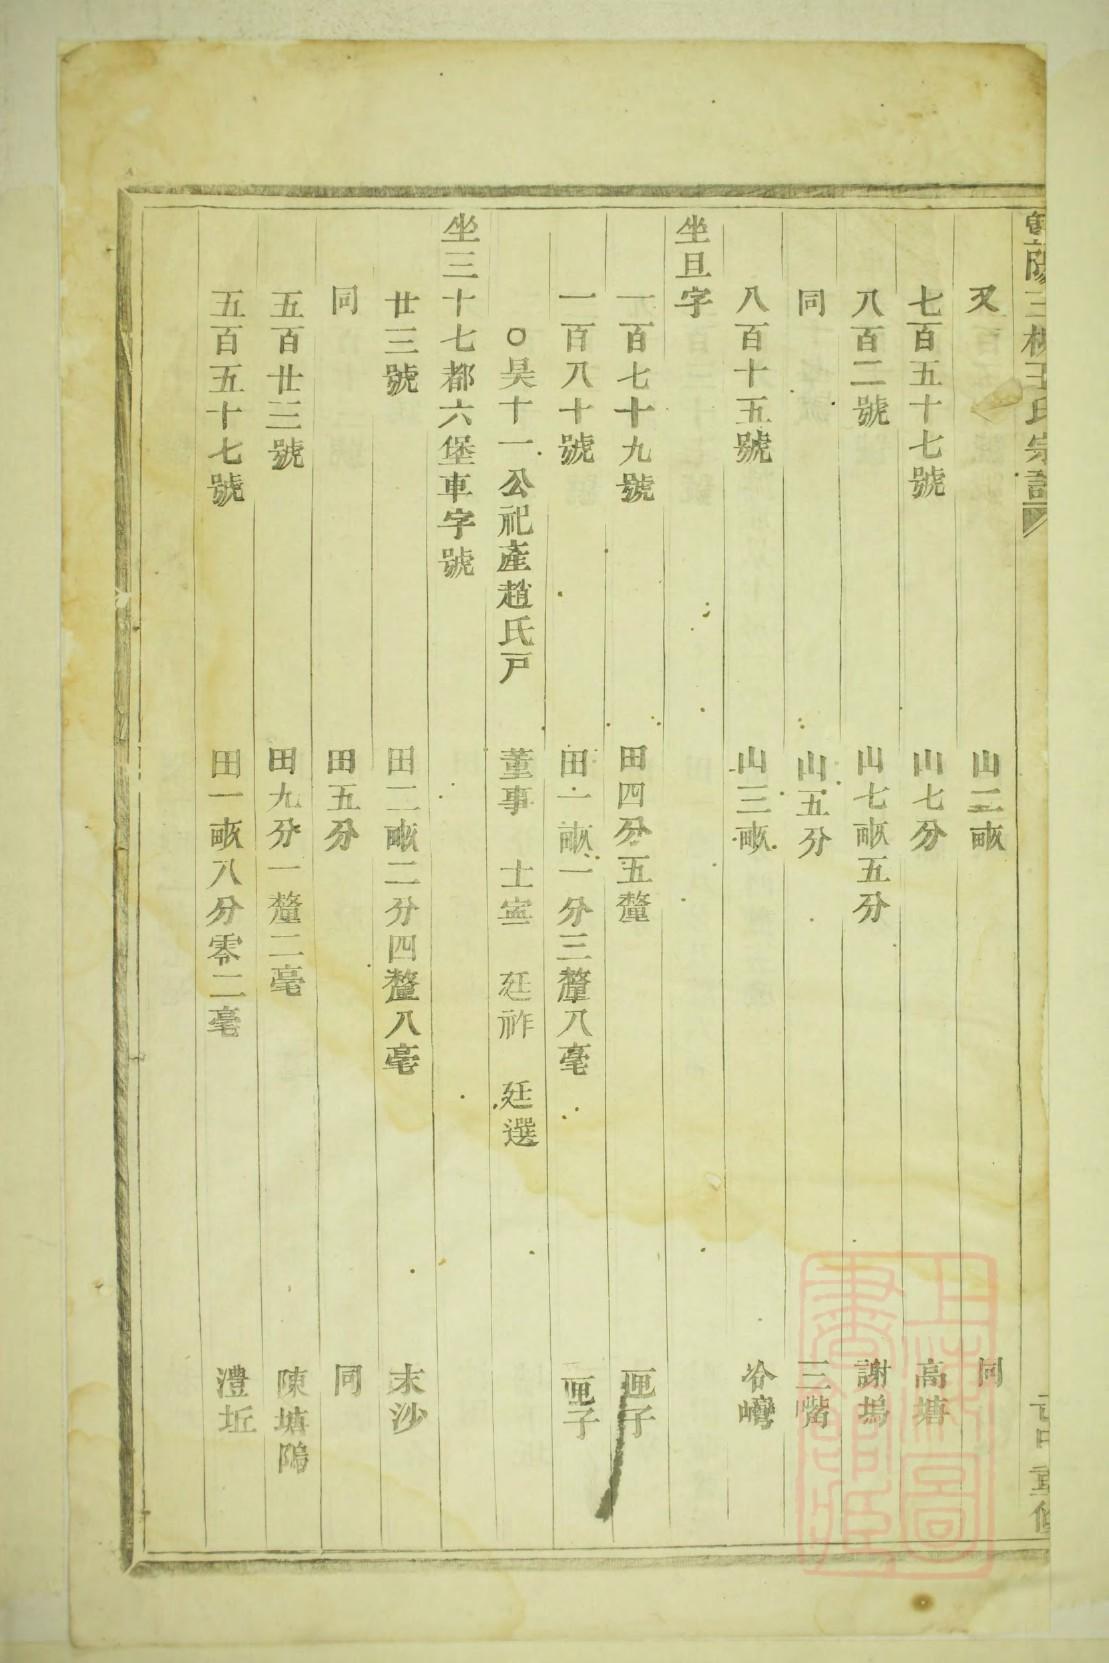 又 山二畝 同
七百五十七號 山七分 高塘
八百二號 山七畝五分 謝塢
同 山五分 三
八百十五號 山三畝
坐旦字
一百七十九號 田四分五釐 匣子
一百八十號 田一畝一分三釐八毫 匣子
○昊十一公祀產趙氏戸 董事 士寍 廷祚 廷選
坐三十七都六堡車字號
廿三號 田二畝二分四釐八毫 末沙
同 田五分 同
五百廿三號 田九分一釐二毫 陳塘隖
五百五十七號 田一畝八分零二毫 澧坵